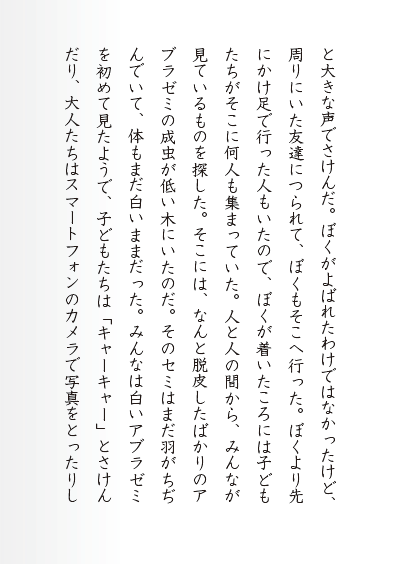 と大きな声でさけんだ。ぼくがよばれたわけではなかったけど、
周りにいた友達につられて、ぼくもそこへ行った。ぼくより先
にかけ足で行った人もいたので、ぼくが着いたころには子ども
たちがそこに何人も集まっていた。人と人の間から、みんなが
見ているものを探した。そこには、なんと脱皮したばかりのア
ブラゼミの成虫が低い木にいたのだ。そのセミはまだ羽がちぢ
んでいて、体もまだ白いままだった。みんなは白いアブラゼミ
を初めて見たようで、子どもたちは「キャーキャー」とさけん
だり、大人たちはスマートフォンのカメラで写真をとったりし